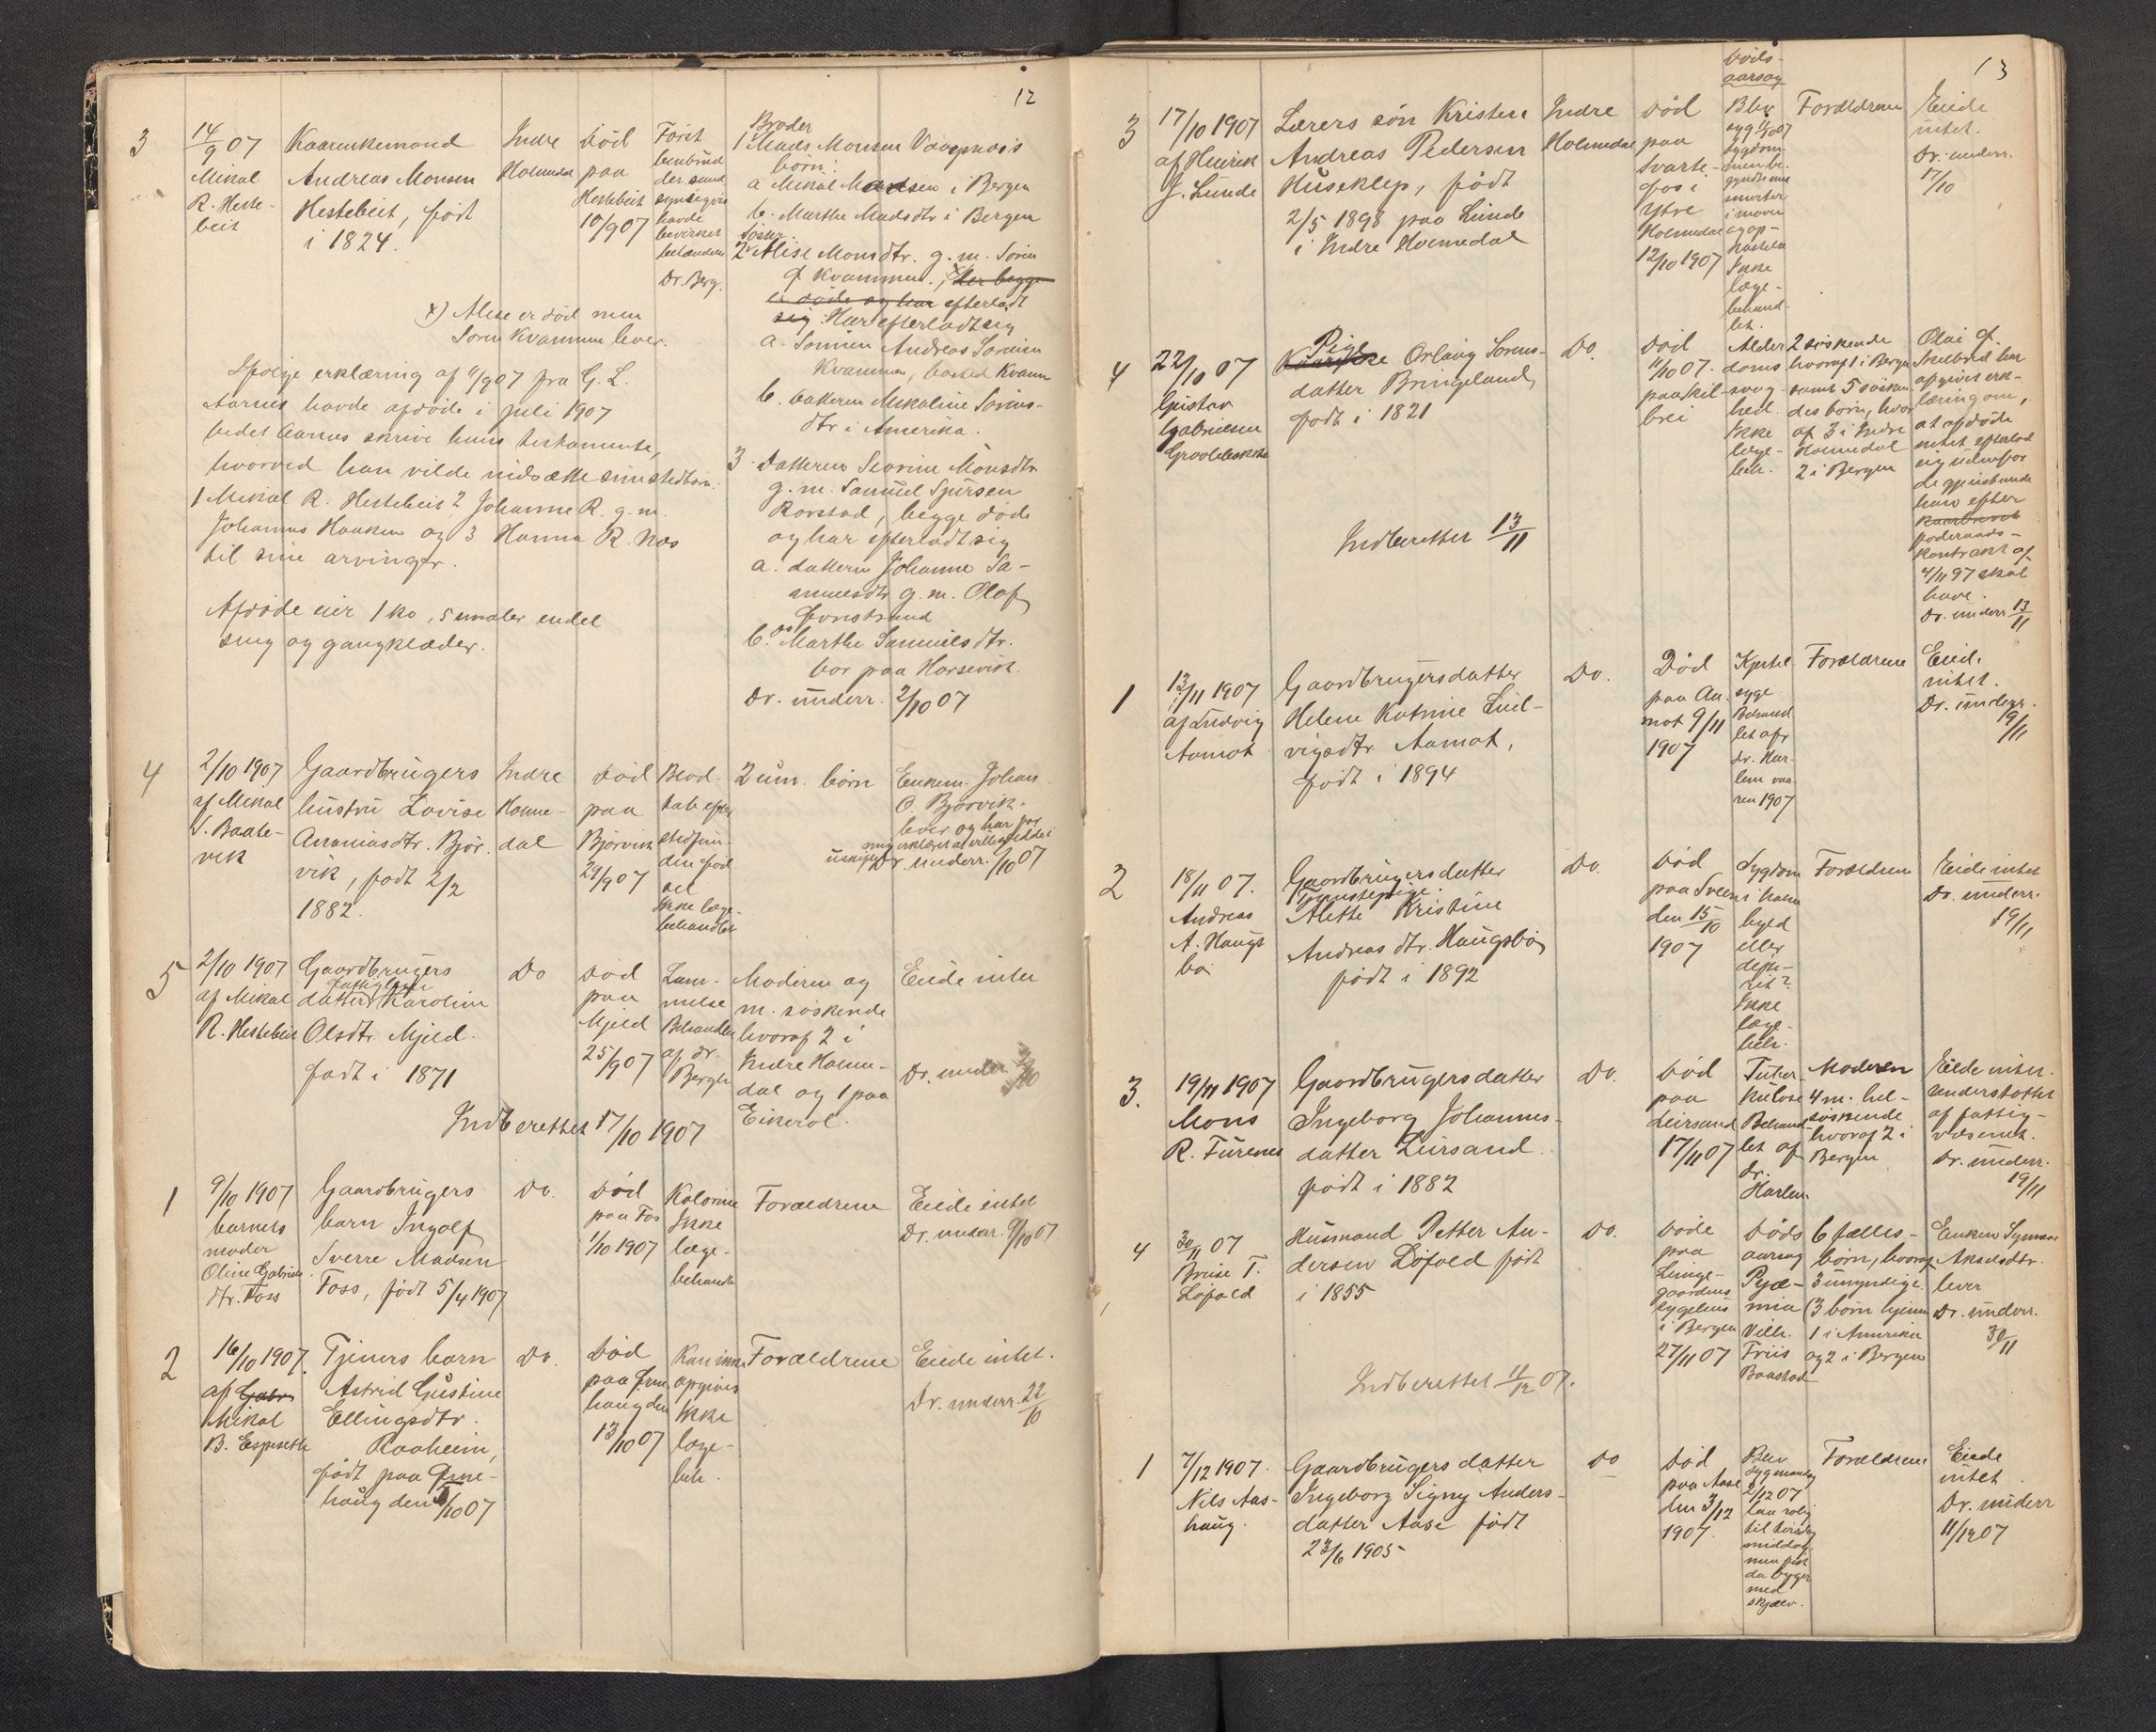 12
3
14/9 07
Mikal
R. Heste-
beit
Kaarenkemand
Andreas Monsen
Hestebeit, født
i 1824.
Indre
Holmedal
Død
paa
Hestebeit
10/9 07
Først
benbrud
der sand
synligvis
havde
bevirket
Dr. Berg.
Broder
1 Mads Monsen Vaagnæs's
børn:
a Mikal Madsen i Bergen
b. Marthe Madsdtr i Bergen
Søster.
2 Alise Monsdtr. g. m. Søren
Kvammen. x) der begge
er døde og har efterladt
sig. Har efterladt sig
a. Sønnen Andreas Sørensen
Kvammen, bosted Kvam
b. Datteren Mikaline Sørens-
dtr i Amerika.
3. Datteren Severine Monsdtr
g. m. Samuel Sjursen
Rørstad, begge døde
og har efterladt sig
a. datteren Johanne Sa-
muelsdtr g. m. Olaf
Fonstrand
b. do Marthe Samuelsdtr.
bor paa Horsevik.
Dr. underr. 2/10 07
x) Alise er død men
Søren Kvammen lever.
Ifølge erklæring af 11/9 07 fra G. L.
Aarnes havde afdøde i juli 1907
bedet Aarnes skrive hans testamente,
hvorved han vilde indsætte sine stedbørn:
1 Mikal R. Hestebeit 2 Johanne R. g. m.
Johannes Haaken og 3 Hanna R. Næs
til sine arvinger.
Afdøde eier 1 ko, 5 smaler endel
seng og gangklæder.
4
2/10 1907
af Mikal
S. Baate-
vik
Gaardbrugers
hustru Lovise
Ananiasdtr. Bjør-
vik, født 2/2
1882.
Indre
Holme-
dal
Død
paa
Bjørvik
29/9 07
Blod-
tab efter
stedfun-
den fød
sel
Ikke læge-
behandlet
2 um. børn
Enkem. Johan
O. Bjørvik.
lever og har for
mig erklæret at ville sidde i
uskiftet Dr. underr. 2/10 07
5
2/10 1907
af Mikal
R. Hestebeit
Gaardbrugers
fattiglem
datter Karoline
Olsdtr. Mjeld.
født i 1871
Do
Død
paa
Mjeld
25/9 07
Lam-
melse
Behandlet
af dr.
Bergh
Moderen og
m. søskende
hvoraf 2 i
Indre Holme-
dal og 1 paa
Eikerol.
Eiede intet
Dr. underr. 2/10
Indberettet 17/10 1907
1
9/10 1907
barnets
moder
Oline Gabriels
dtr. Foss
Gaardbrugers
barn Ingolf
Sverre Madsen
Foss, født 5/4 1907
Do.
Død
paa Fos
1/10 1907
Kolorine
Ikke
læge-
behandlet
Forældrene
Eiede intet
Dr. underr. 9/10 07
2
16/10 1907.
af Gabr
Mikal
B. Espeseth
Tjeners barn
Astrid Gustine
Ellingsdtr.
Raaheim,
født paa Grne-
haug den 5/10 07
Do.
Død
paa Grne
haug den
13/10 07
Kan ikke
opgives
Ikke
læge-
beh.
Forældrene
Eiede intet.
Dr. underr. 22/10
13
Døds-
aarsag
3
17/10 1907
af Henrik
J. Lunde
Lærers søn Kristen
Andreas Pedersen
Huseklep, født
2/5 1898 paa Lunde
i Indre Holmedal
Indre
Holmedal
Død
paa
Svarte-
fos i
Ytre
Holmedal
12/10 1907
Blev
syg
sygdom-
men be-
gyndte med
smerter
i maven
og op-
kastelse
Ikke
læge-
behand-
let.
Forældrene
Eiede
intet.
Dr. underr.
17/10
4
22/10 07
Gustav
Gabrielsen
Groolebakke
Pige
Orlaug Sørens-
datter Bringeland,
født i 1821
Do.
Død
11/10 07.
paa Skil-
brei
Alder-
doms
svag-
hed.
Ikke
læge-
beh.
2 søskende
hvoraf 1 i Bergen
samt 5 søsken-
des børn, hvor
af 3 i Indre
Holmedal
2 i Bergen
Olai J.
Skilbred har
afgivet erk-
læring om,
at afdøde
intet efterlod
sig udenfor
de gjenstande
han efter
føderaads-
kontrakt af
4/11 97 skal
have.
Dr. underr. 13/11
Indberettet 13/11
1
13/11 1907
af Ludvig
Aamot
Gaardbrugersdatter
Helene Katrine Lud-
vigsdtr. Aamot,
født i 1894
Do.
Død
paa Aa-
mot 9/11
1907
Kjertel
syge
Behand
let af
dr. Har-
lem vaa-
ren 1907
Forældrene
Eied.
intet.
Dr. underr.
19/11
2
18/11 07.
Andreas
A. Haugs
bø
Gaardbrugersdatter
Tjenestepige
Alette Kristine
Andreasdtr. Haugsbø,
født i 1892
Do.
Død
paa Sveen
den 15/10
1907
Sygdom
i halsen
byld
eller
difte-
rit?
Ikke
læge-
beh.
Forældrene
Eiede intet
Dr. underr.
19/11
3.
19/11 1907
Mons
R. Furenes
Gaardbrugersdatter
Ingeborg Johannes-
datter Leirsand.
født i 1882
Do.
Død
paa
Leirsand
17/11 07
Tuber-
kulose
Behand-
let af
Dr.
Harlem
Moderen
4 m. hel-
søskende
hvoraf 2 i
Bergen
Eiede intet.
Understøttet
af fattig-
væsenet.
Dr. underr.
19/11
4
30/11 07
Brite T.
Løfold
Husmand Petter An-
dersen Løfold født
i 1855
Do.
Døde
paa
Lunge-
gaardens
sygehus
i Bergen
27/11 07
Døds
aarsag
Pyæ-
mia
Vilh.
Friis
Baastad
6 fælles-
børn, hvoraf
3 umyndige.
(3 børn hjemme
1 i Amerika
og 2 i Bergen
Enken Synnøve
Akselsdtr.
lever
Dr. underr.
30/11
Indberettet 11/12 07.
1
7/12 1907.
Nils Aas-
haug.
Gaardbrugers datter
Ingeborg Signy Anders-
datter Aase født
23/6 1905
Do
Død
paa Aase
den 3/12
1907.
Blev
syg mandag
2/12 07
laa rolig
til tirsdag
middag.
med
skjælv.
Forældrene
Eiede
intet.
Dr. underr
11/12 07